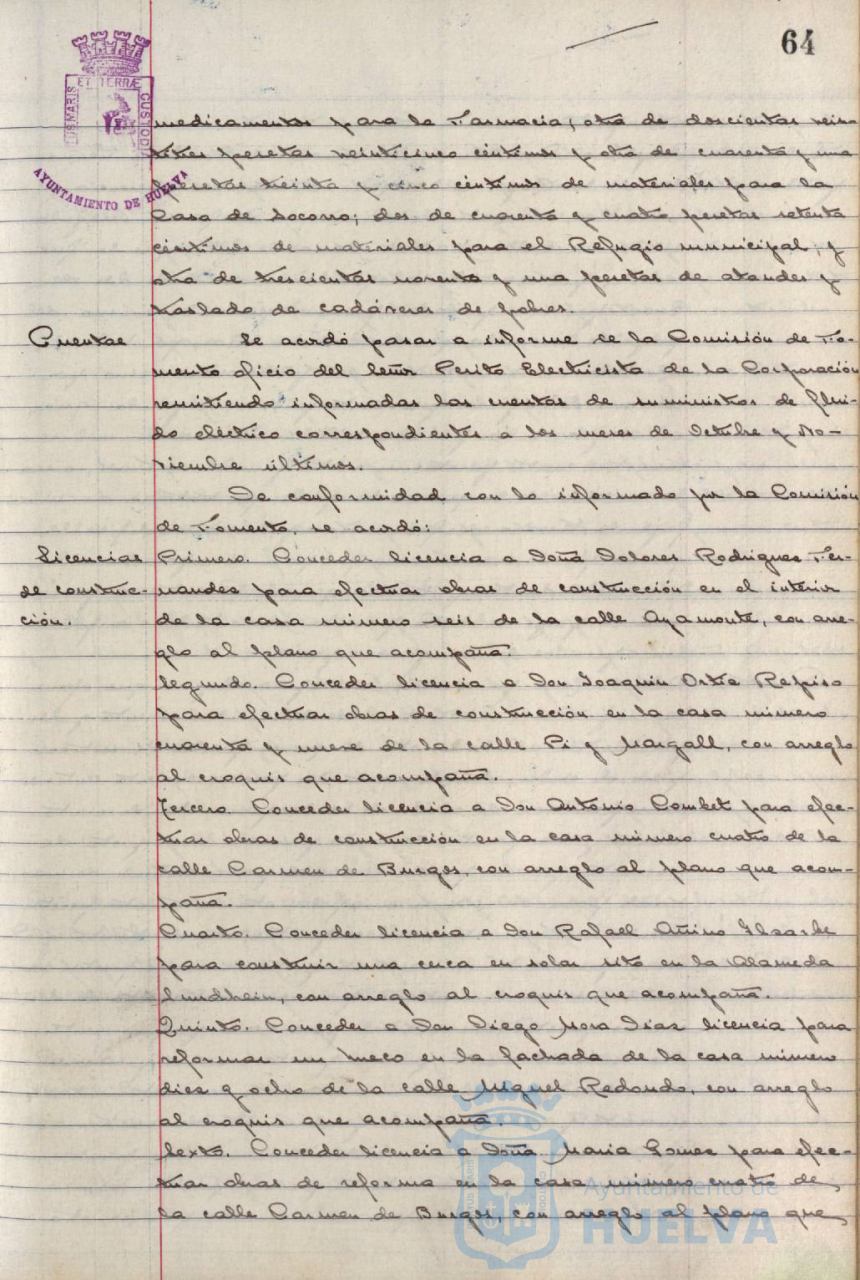 64
PORTUS MARIS ET TERRÆ CUSTODIA
AYUNTAMIENTO DE HUELVA
medicamentos para la Farmacia; otra de doscientas vein-
titres pesetas veinticinco céntimos y otra de cuarenta y una
pesetas treinta y cinco céntimos de materiales para la
Casa de Socorro; dos de cuarenta y cuatro pesetas setenta
céntimos de materiales para el Refugio municipal; y
otra de trescientas noventa y una pesetas de ataudes y
traslado de cadáveres de pobres.
Cuentas
Se acordó pasar a informe de la Comisión de Fo-
mento oficio del Señor Perito Electricista de la Corporación
remitiendo informadas las cuentas de suministros de flúi-
do eléctrico correspondientes a los meses de Octubre y No-
viembre últimos.
De conformidad con lo informado por la Comisión
de Fomento, se acordó:
Licencias
de construc-
ción.
Primero. Conceder licencia a Doña Dolores Rodriguez Fer-
nandez para efectuar obras de construcción en el interior
de la casa número seis de la calle Ayamonte, con arre-
glo al plano que acompaña.
Segundo. Conceder licencia a Don Joaquin Ortiz Repiso
para efectuar obras de construcción en la casa número
cuarenta y nueve de la calle Pi y Margall, con arreglo
al croquis que acompaña.
Tercero. Conceder licencia a Don Antonio Combet para efec-
tuar obras de construcción en la casa número cuatro de la
calle Carmen de Burgos, con arreglo al plano que acom-
paña.
Cuarto. Conceder licencia a Don Rafael
para construir una cerca en solar sito en la Alameda
Sundhein, con arreglo al croquis que acompaña.
Quinto. Conceder a Don Diego Mora Diaz licencia para
reformar un hueco en la fachada de la casa número
diez y ocho de la calle Miguel Redondo, con arreglo
al croquis que acompaña.
Sexto. Conceder licencia a Doña Maria Gomez para efec-
tuar obras de reforma en la casa número cuatro de
la calle Carmen de Burgos, con arreglo al plano que
Ayuntamiento de
HUELVA